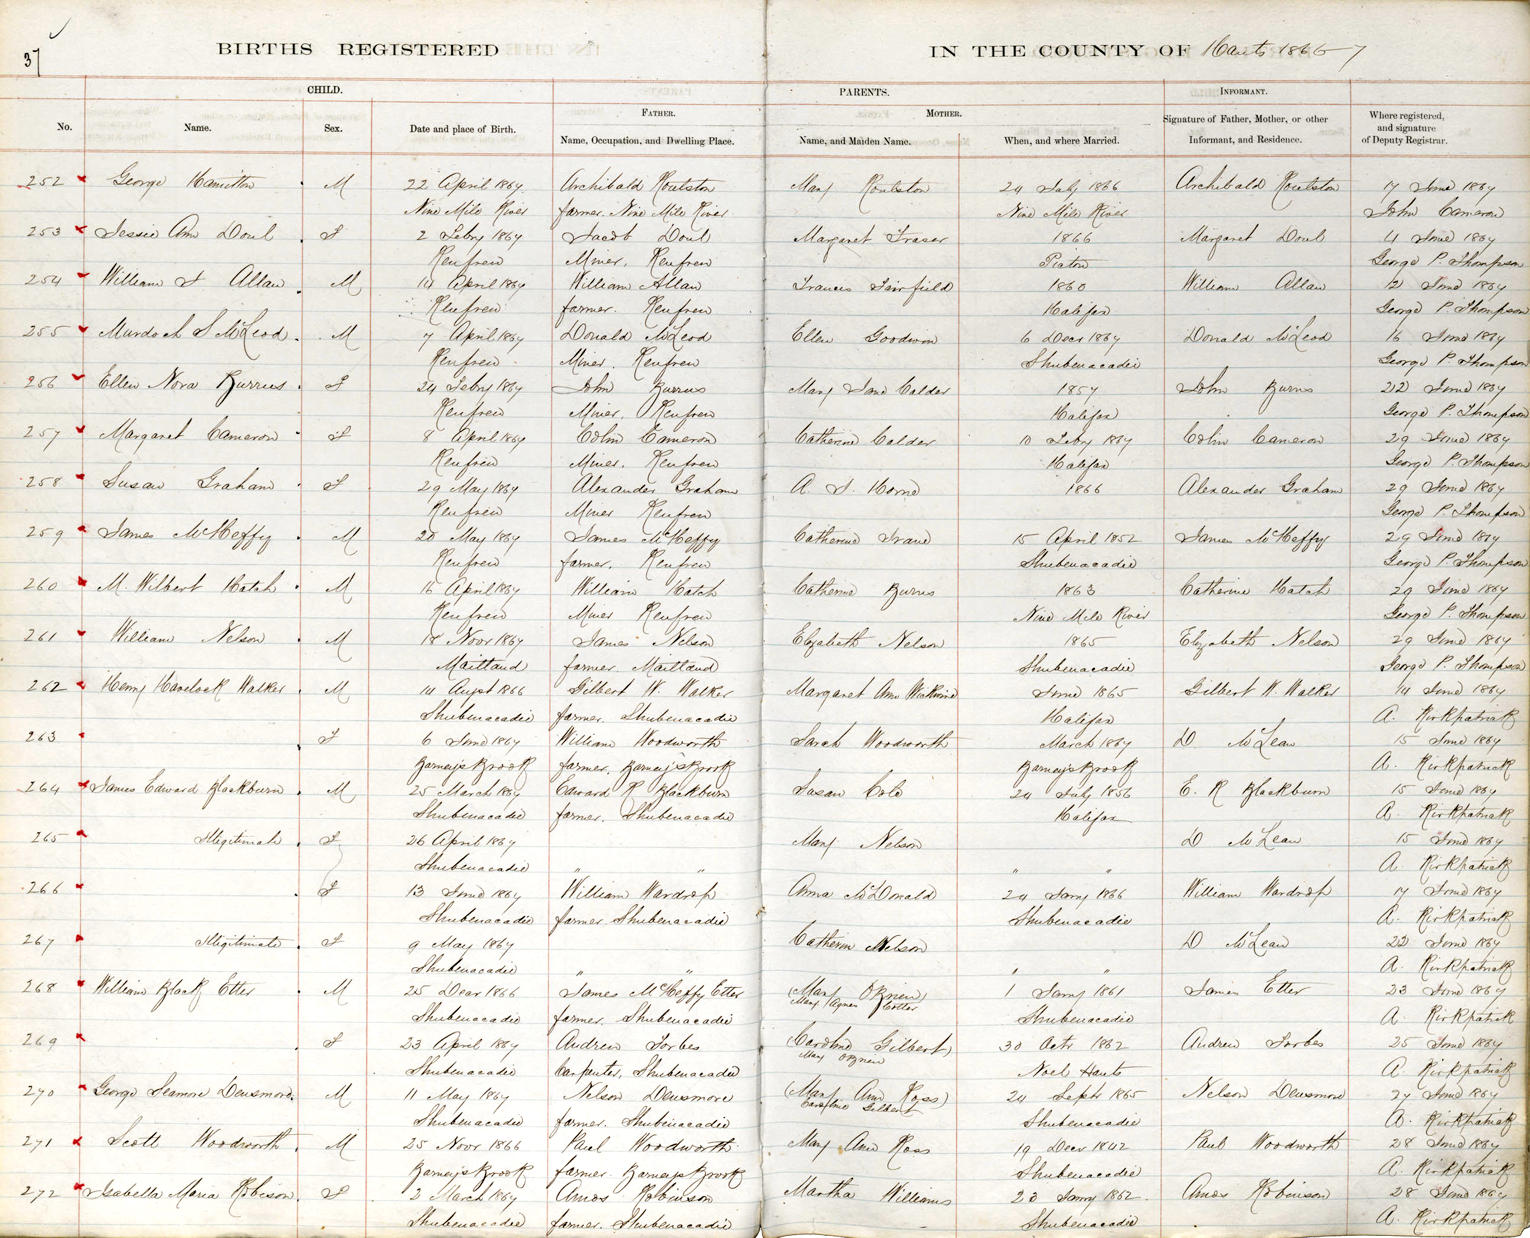 37
BIRTHS REGISTERED IN THE COUNTY OF Hants 1866-7
CHILD. PARENTS. INFORMANT.
FATHER. MOTHER.
No. Name. Sex. Date and place of Birth. Name, Occupation, and Dwelling Place. Name, and Maiden Name. When, and where Married. Signature of Father, Mother, or other Informant, and Residence. Where registered, and signature of Deputy Registrar.
252 George Hamilton M 22 April 1867 Archibald Roulston Mary Roulston 24 July 1866 Archibald Roulston 17 June 1867
Nine Mile River farmer. Nine Mile River Nine Mile River John Cameron
253 Jessie Ann Doul F 2 Feby 1867 Jacob Doul Margaret Fraser 1866 Margaret Doul 4 June 1867
Renfrew Miner. Renfrew Picton George P. Thompson
254 William J Allan M 14 April 1867 William Allan Frances Fairfield 1860 William Allan 12 June 1867
Renfrew farmer. Renfrew Halifax George P. Thompson
255 Murdoch S McLeod M 7 April 1867 Donald McLeod Ellen Goodwin 6 Decr 1867 Donald McLeod 16 June 1867
Renfrew Miner. Renfrew Shubenacadie George P. Thompson
256 Ellen Nora Burrus F 24 Feby 1867 John Burrus Mary Jane Calder 1857 John Burns 22 June 1867
Renfrew Miner. Renfrew Halifax George P. Thompson
257 Margaret Cameron F 8 April 1867 Colin Cameron Catherine Calder 10 Feby 1867 Colin Cameron 29 June 1867
Renfrew Miner. Renfrew Halifax George P. Thompson
258 Susan Graham F 29 May 1867 Alexander Graham A. J. Horne 1866 Alexander Graham 29 June 1867
Renfrew Miner Renfrew George P. Thompson
259 James McHeffy M 20 May 1867 James McHeffy Catherine 15 April 1852 James McHeffy 29 June 1867
Renfrew farmer. Renfrew Shubenacadie George P. Thompson
260 M. Wilbert Hatch M 16 April 1867 William Hatch Catherine Burns 1863 Catherine Hatch 29 June 1867
Renfrew Miner Renfrew Nine Mile River George P. Thompson
261 William Nelson M 18 Novr 1867 James Nelson Elizabeth Nelson 1865 Elizabeth Nelson 29 June 1867
Maitland farmer. Maitland Shubenacadie George P. Thompson
262 Henry Havelock Walker M 14 Augst 1866 Gilbert W. Walker Margaret Ann June 1865 Gilbert W. Walker 14 June 1867
Shubenacadie farmer. Shubenacadie Halifax A. Kirkpatrick
263 F 6 June 1867 William Woodworth Sarah Woodworth March 1867 D McLean 15 June 1867
Barney's Brook farmer. Barney's Brook Barney's Brook A. Kirkpatrick
264 James Edward Blackburn M 25 March 1867 Edward R Blackburn Susan Cole 24 July 1856 E. R Blackburn 15 June 1867
Shubenacadie farmer. Shubenacadie Halifax A. Kirkpatrick
265 Illegitimate F 26 April 1867 Mary Nelson D McLean 15 June 1867
Shubenacadie " " " " A. Kirkpatrick
266 F 13 June 1867 William Wardrop Anna McDonald 24 Jany 1866 William Wardrop 17 June 1867
Shubenacadie farmer. Shubenacadie Shubenacadie A. Kirkpatrick
267 Illegitimate F 9 May 1867 Catherine Nelson D McLean 22 June 1867
Shubenacadie " " " " A. Kirkpatrick
268 William Black Etter M 25 Decr 1866 James McHeffy Etter (Mary O'Brien) 1 Jany 1861 James Etter 23 June 1867
Mary Agnes Etter
Shubenacadie farmer. Shubenacadie Shubenacadie A. Kirkpatrick
269 F 23 April 1867 Andrew Forbes (Caroline Gilbert) 30 Octr 1862 Andrew Forbes 25 June 1867
Mary O'Brien
Shubenacadie Carpenter. Shubenacadie Noel Hants A. Kirkpatrick
270 George Seamore Densmore M 11 May 1867 Nelson Densmore (Mary Ann Ross) 24 Septr 1865 Nelson Densmore 27 June 1867
Caroline Gilbert
Shubenacadie farmer. Shubenacadie Shubenacadie A. Kirkpatrick
271 Scott Woodworth M 25 Novr 1866 Paul Woodworth Mary Ann Ross 19 Decr 1842 Paul Woodworth 28 June 1867
Barney's Brook farmer. Barney's Brook Shubenacadie A. Kirkpatrick
272 Isabella Maria Robison F 2 March 1867 Amos Robinson Martha Williams 23 Jany 1862 Amos Robinson 28 June 1867
Shubenacadie farmer. Shubenacadie Shubenacadie A. Kirkpatrick